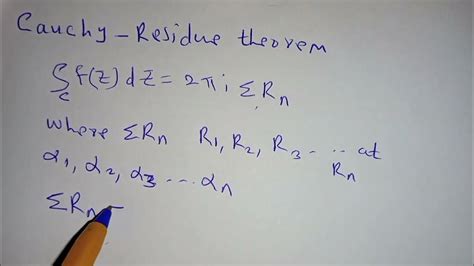 Cauchy - Residue theorem
∫c f(z) dz = 2πi ΣRn
where ΣRn R1, R2, R3 ... at
α1, α2, α3 ... αn Rn
ΣRn -